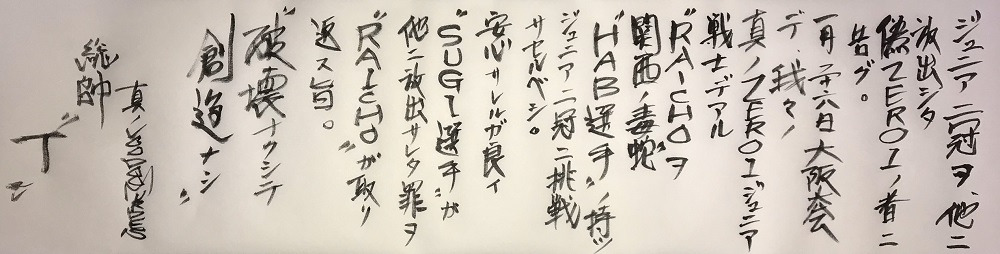 ジュニア二冠ヲ、他ニ
放出シタ
偽ZERO1ノ者ニ
告グ。
一月二十六日大阪大会
デ我々ノ
真ノZERO1ジュニア
戦士デアル
"RAICHO"ヲ
関西ノ毒蛇
"HAB選手"ノ持ツ
ジュニア二冠ニ挑戦
サセルベシ。
安心サレルガ良イ
"SUGI選手"ガ
他ニ放出サレタ罪ヲ
"RAICHO"ガ取リ
返ス旨。
"破壊ナクシテ
創造ナシ"
真ノ
総帥